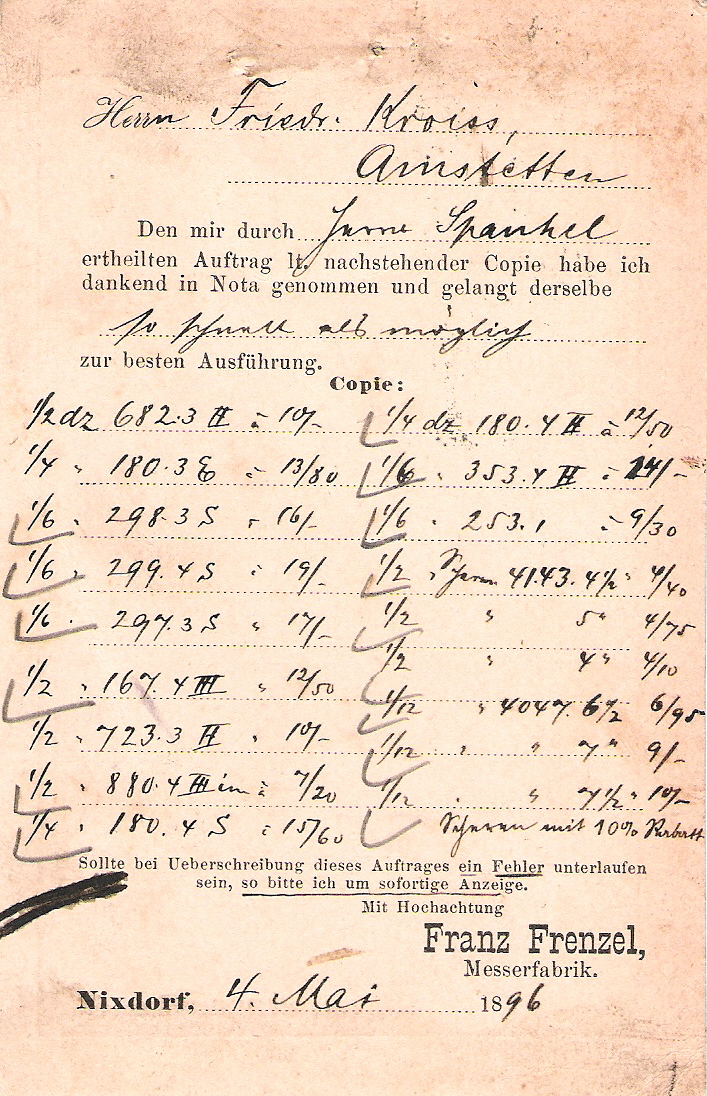 Herrn Friedr. Kroiss,
Amstetten
Den mir durch Herrn Spankel
ertheilten Auftrag lt. nachstehender Copie habe ich
dankend in Nota genommen und gelangt derselbe
so schnell als möglich
zur besten Ausführung.
Copie:
1/2 dz 682.3 II à 10/-
1/4 " 180.3 E à 13/80
1/6 " 298.3 S " 16/-
1/6 " 299.4 S à 19/-
1/6 " 297.3 S " 17/-
1/2 " 167.4 III " 12/50
1/2 " 723.3 II " 10/-
1/2 " 880.4 III im à 7/20
1/4 " 180.4 S à 15/60
1/4 dz 180.4 II à 12/50
1/6 " 353.4 II à 14/-
1/6 " 253.1 à 9/30
1/2 " Scheren 4143. 4 1/2 " 4/40
1/2 " 5 " 4/75
1/2 " 4 " 4/10
1/12 " 4047. 6 1/2 6/95
1/12 " " 7 " 9/-
1/12 " " 7 1/2 " 10/-
Scheren mit 10% Rabatt
Sollte bei Ueberschreibung dieses Auftrages ein Fehler unterlaufen
sein, so bitte ich um sofortige Anzeige.
Mit Hochachtung
Franz Frenzel,
Messerfabrik.
Nixdorf, 4. Mai 1896